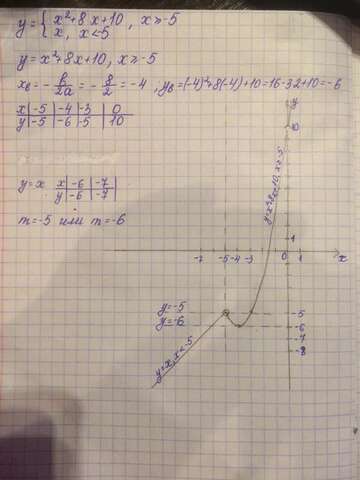 y = { x²+8x+10, x≥-5
x, x<5
y=x²+8x+10, x≥-5
xв = -в/2a = -8/2 = -4, yв=(-4)²+8(-4)+10=16-32+10=-6
x | -5 | -4 | -3 | 0
y | -5 | -6 | -5 | 10
y=x x | -6 | -7 |
y | -6 | -7 |
m=-5 или m=-6
y
10
y=x²+8x+10, x≥-5
1
-7 -5 -4 -3 0 1 x
y=-5 -5
y=-6 -6
-7
-8
y=x, x<-5